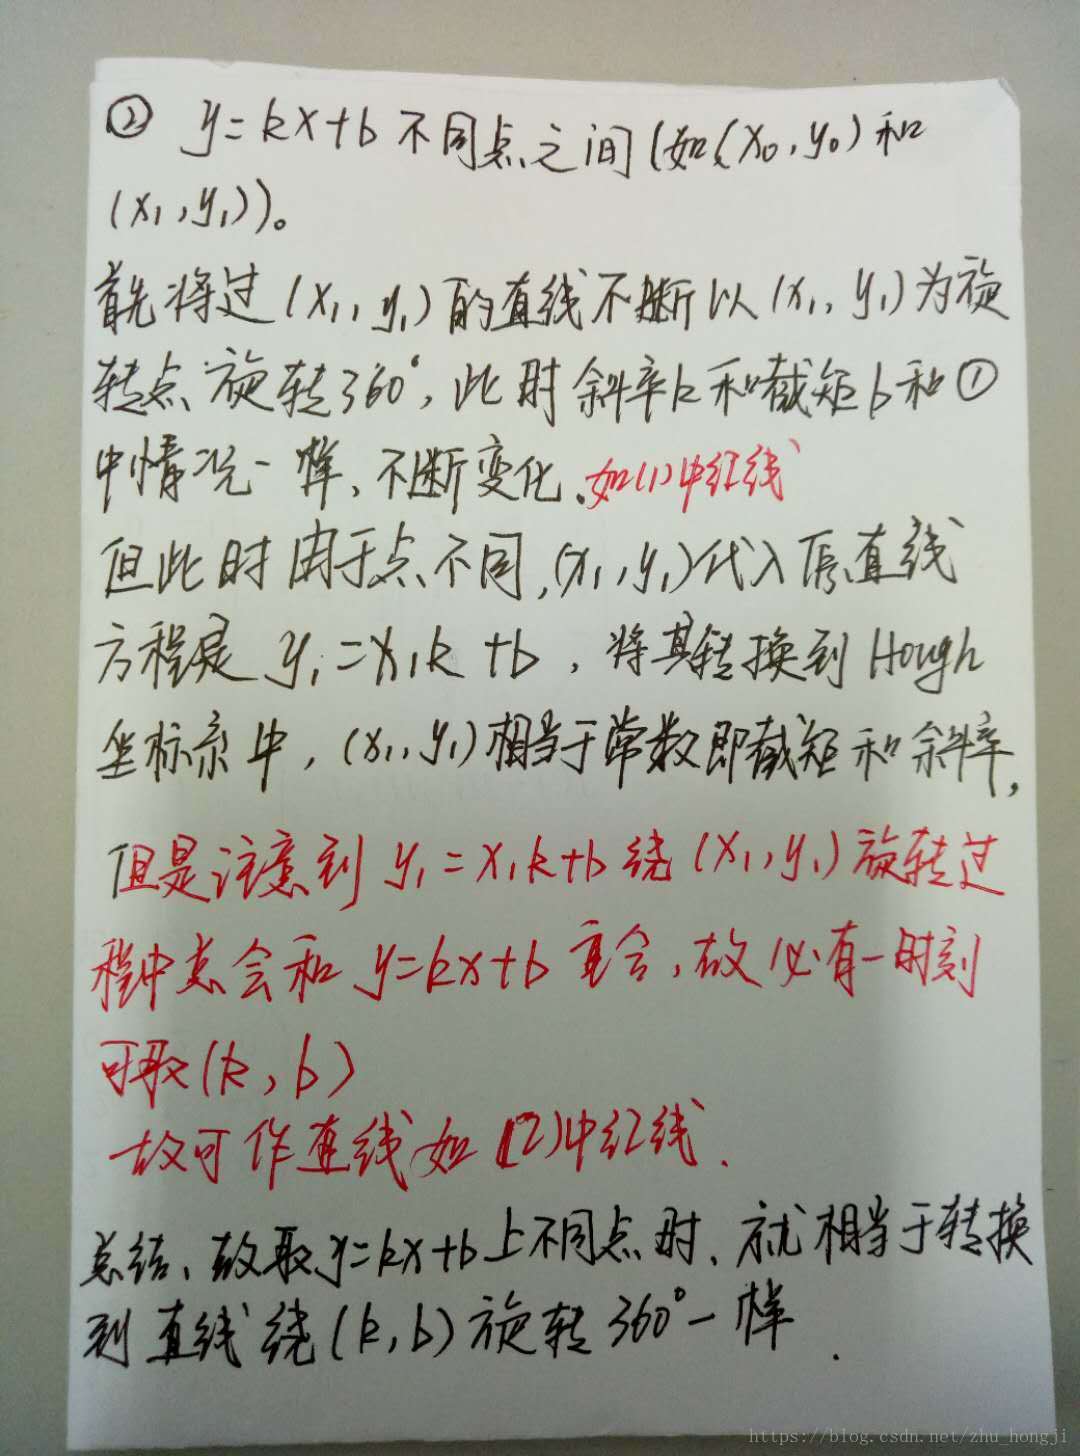 ② y=kx+b 不同点之间(如(x₀,y₀)和
(x₁,y₁))。
首先将过(x₁,y₁)的直线不断以(x₁,y₁)为旋
转点旋转360°,此时斜率k和截矩b和①
中情况一样,不断变化.如(1)中红线
但此时由于点不同,(x₁,y₁)代入原直线
方程是 y₁=x₁k+b,将其转换到Hough
坐标系中,(x₁,y₁)相当于常数即截矩和斜率,
但是注意到 y₁=x₁k+b绕(x₁,y₁)旋转过
程中总会和y=kx+b重合,故必有一时刻
可取(k,b)
故可作直线如(2)中红线.
总结、故取y=kx+b上不同点时、就相当于转换
到直线绕(k,b)旋转360°一样.
https://blog.csdn.net/zhu_hongji